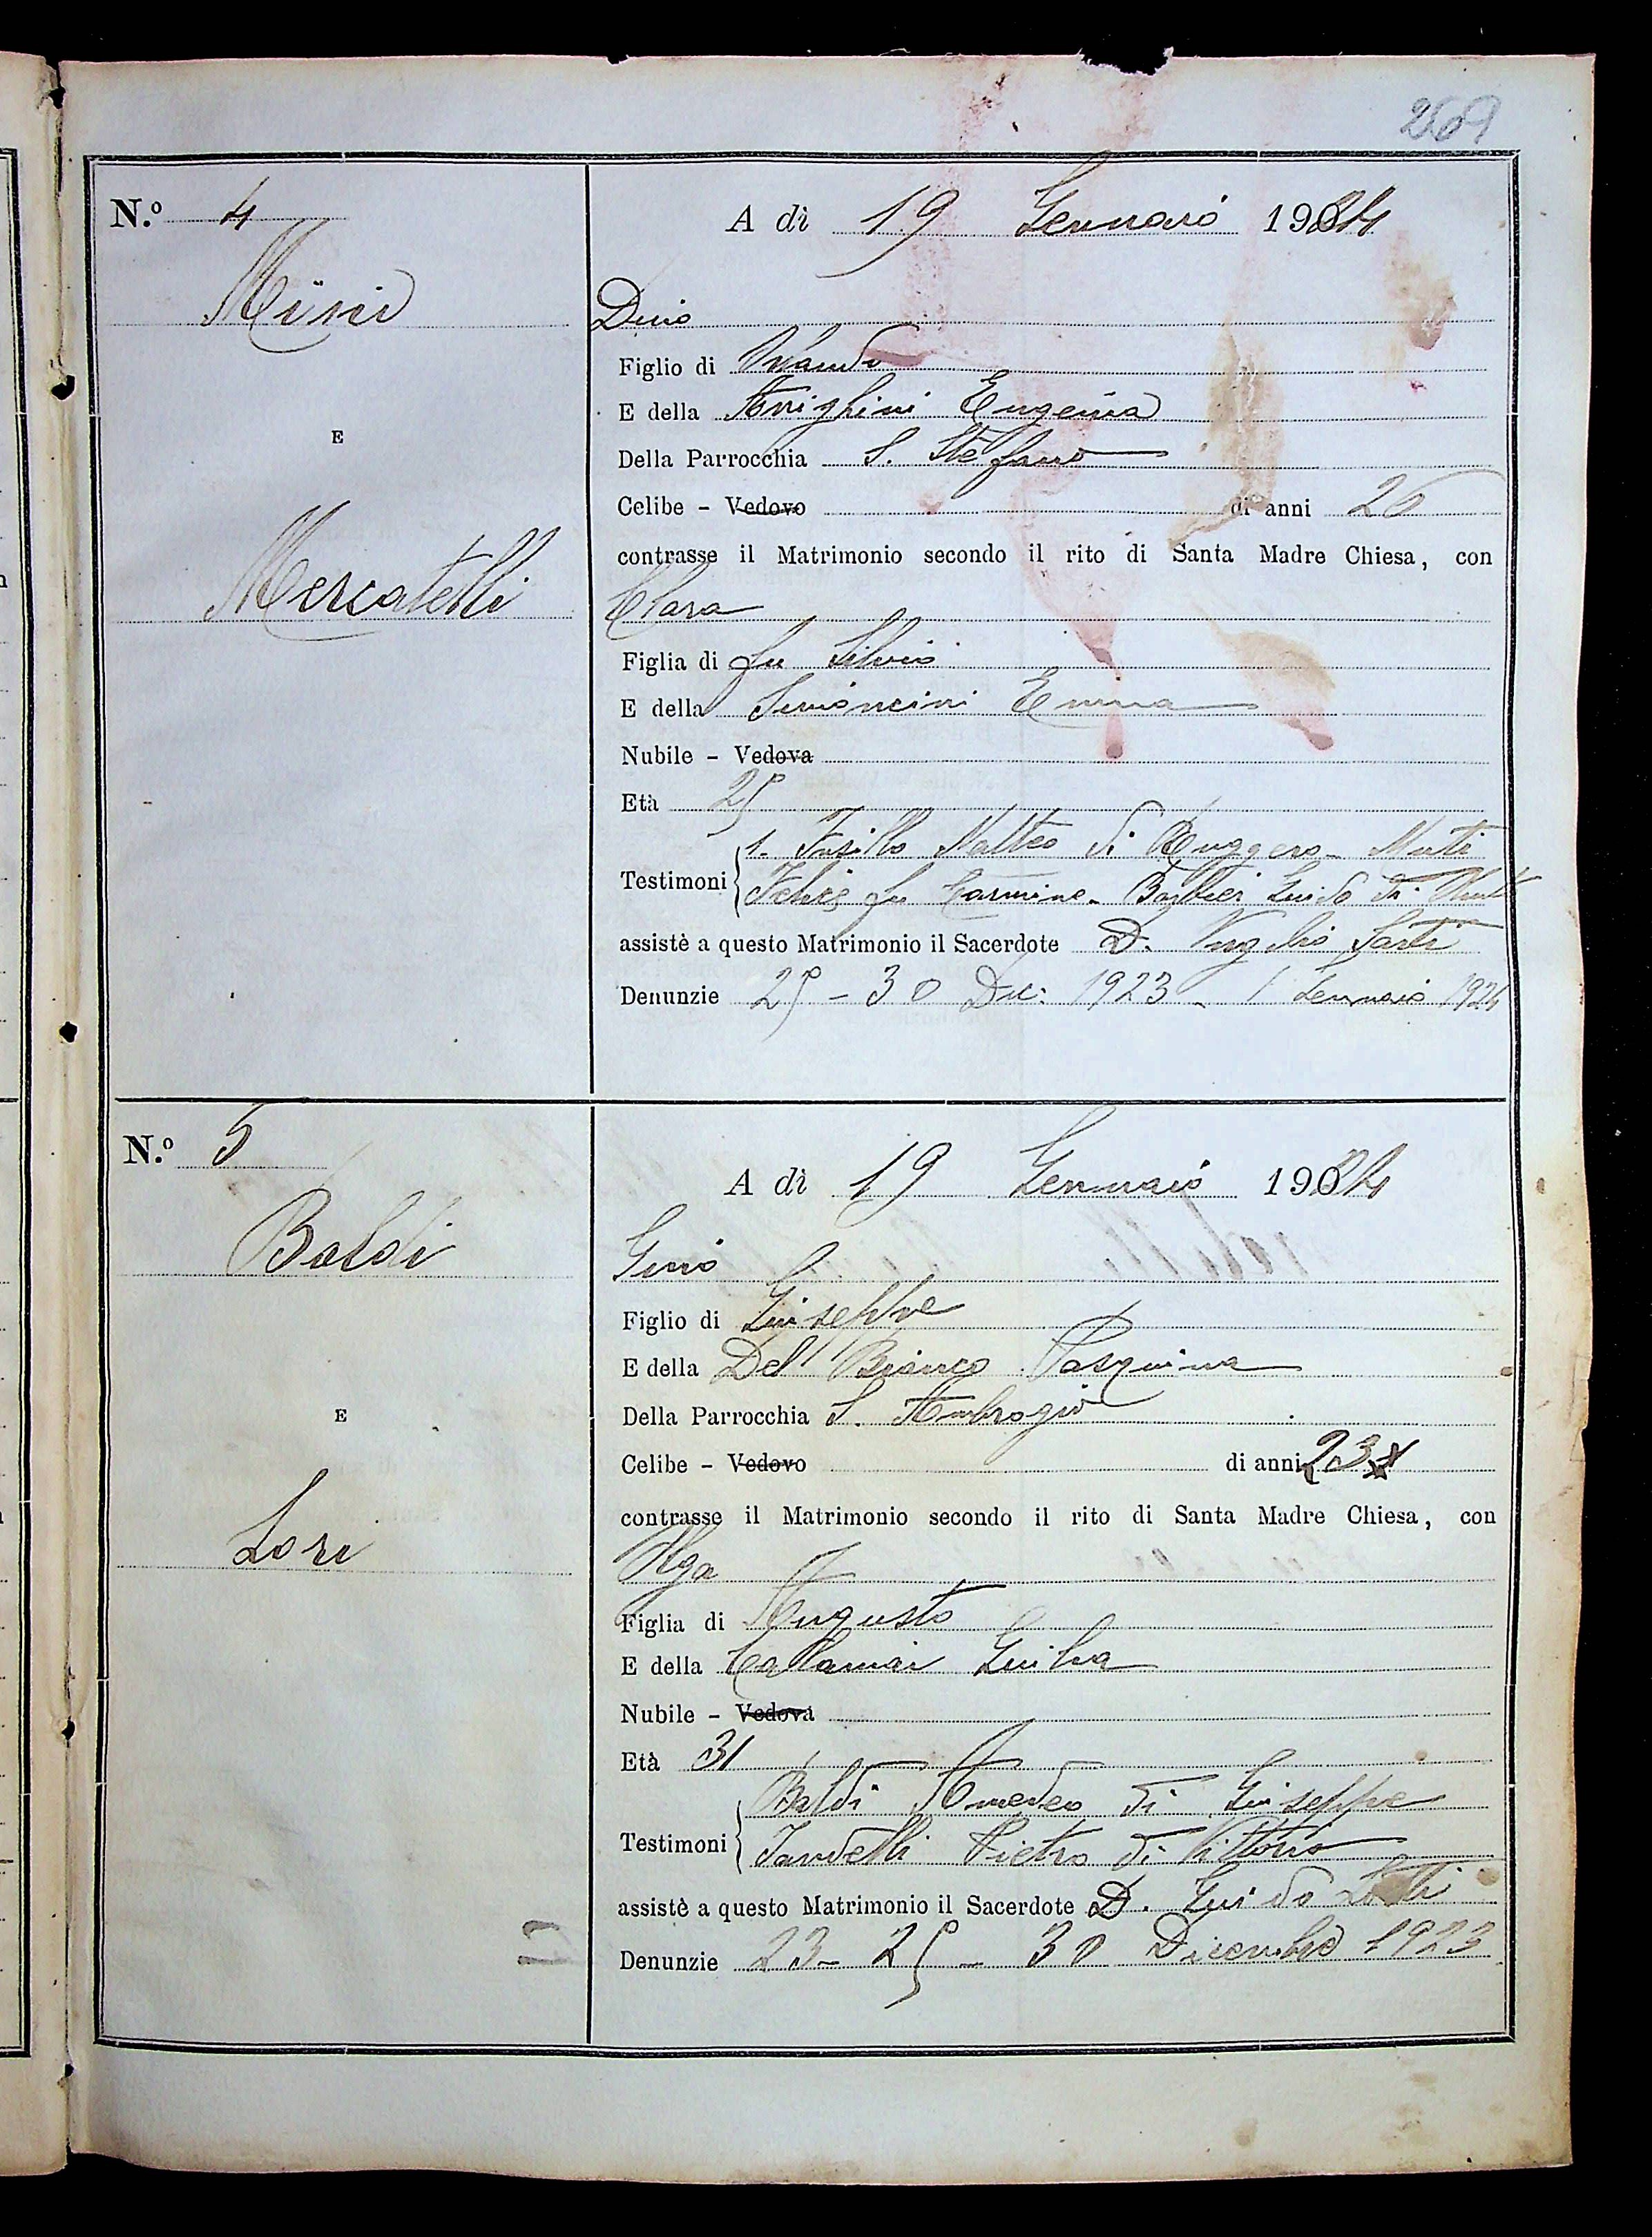 269
N.º 4
A dì 19 Gennaio 1924
Dino
Figlio di
E della Arrighini Eugenia
E
Della Parrocchia S. Stefano
Celibe - Vedovo di anni 26
contrasse il Matrimonio secondo il rito di Santa Madre Chiesa, con
Mercatelli
Clara
Figlia di fu Silvio
E della Simoncini Emma
Nubile - Vedova
Età 25
1. Fusillo Matteo di Ruggero -
Testimoni Felice fu Carmine - Barbieri Guido di
assistè a questo Matrimonio il Sacerdote D. Virgilio Sarti
Denunzie 25 - 30 Dic: 1923 - 1 Gennaio 1924
N.º 5
A dì 19 Gennaio 1924
Baldi
Gino
Figlio di Giuseppe
E della Del Bianco Pasquina
E
Della Parrocchia S. Ambrogio
Celibe - Vedovo di anni 23
contrasse il Matrimonio secondo il rito di Santa Madre Chiesa, con
Lori
Olga
Figlia di Augusto
E della Callamai Giulia
Nubile - Vedova
Età 31
Baldi Amedeo di Giuseppe
Testimoni Nardelli Pietro di Vittorio
assistè a questo Matrimonio il Sacerdote D. Guido
Denunzie 23 - 25 - 30 Dicembre 1923